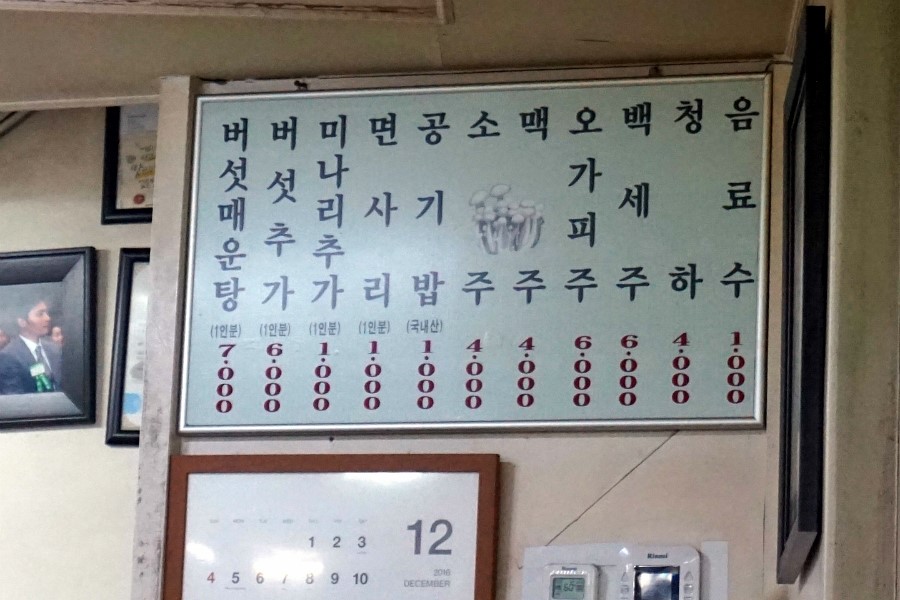 버섯매운탕 (1인분) 7.000
버섯추가 (1인분) 6.000
미나리추가 (1인분) 1.000
면사리 (1인분) 1.000
공기밥 (국내산) 1.000
소주 4.000
맥주 4.000
오가피주 6.000
백세주 6.000
청하 4.000
음료수 1.000
1 2 3
4 5 6 7 8 9 10
12
2016
DECEMBER
Rinnai